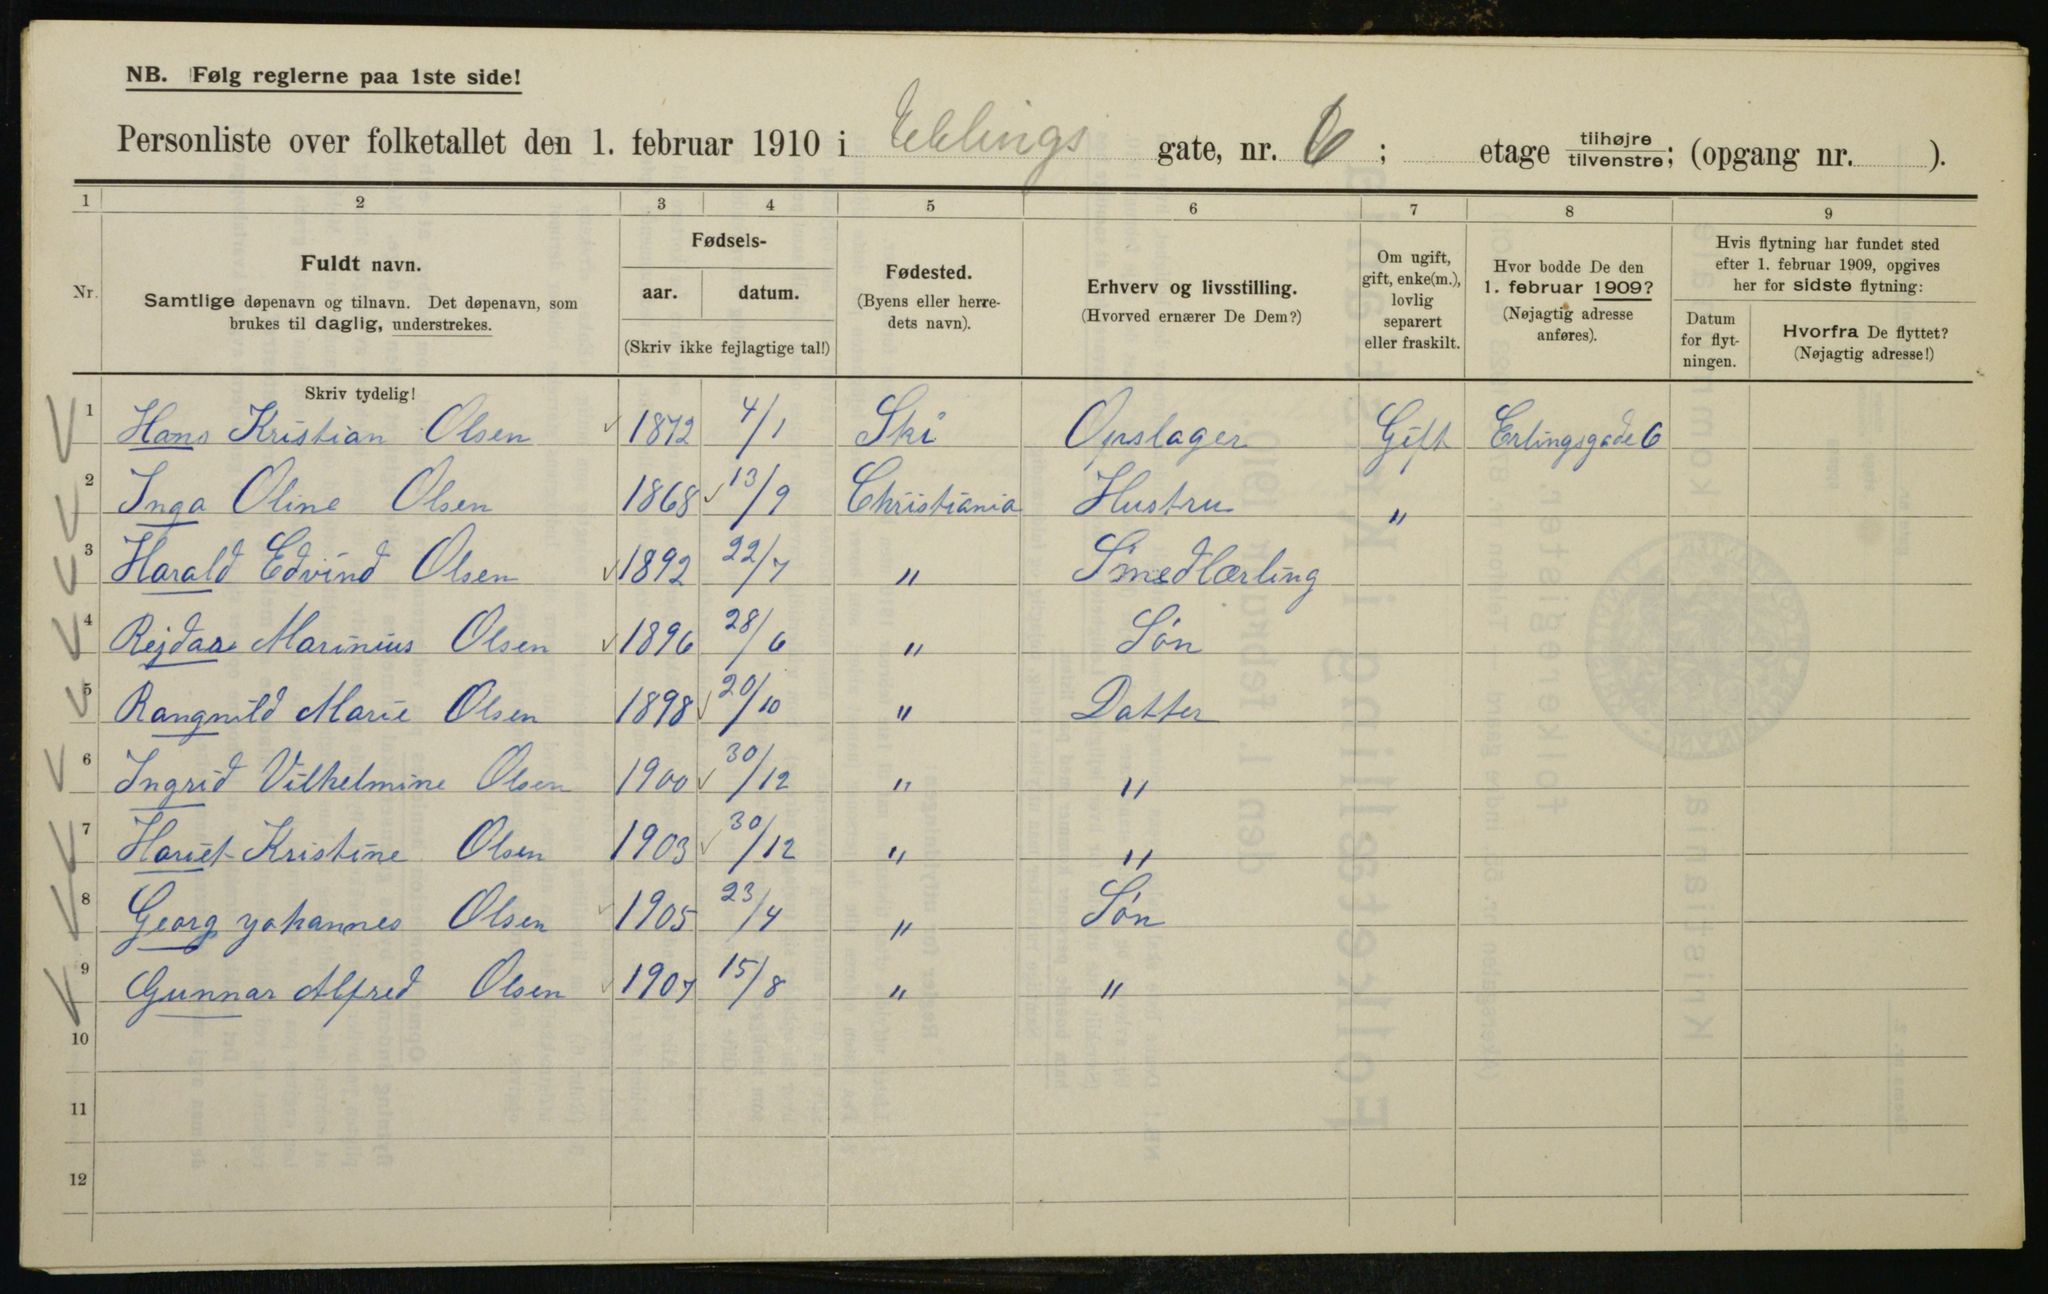 NB. Følg reglerne paa 1ste side!
Personliste over folketallet den 1. februar 1910 i Erlings gate, nr. 6; etage tilhøjre tilvenstre; (opgang nr. ).
1 2 3 4 5 6 7 8 9
Nr.
Fuldt navn.
Samtlige døpenavn og tilnavn. Det døpenavn, som
brukes til daglig, understrekes.
Fødsels-
aar. datum.
(Skriv ikke fejlagtige tal!)
Fødested.
(Byens eller herre-
dets navn).
Erhverv og livsstilling.
(Hvorved ernærer De Dem?)
Om ugift,
gift, enke(m.),
lovlig
separert
eller fraskilt.
Hvor bodde De den
1. februar 1909?
(Nøjagtig adresse
anføres).
Hvis flytning har fundet sted
efter 1. februar 1909, opgives
her for sidste flytning:
Datum
for flyt-
ningen.
Hvorfra De flyttet?
(Nøjagtig adresse!)
Skriv tydelig!
1 Hans Kristian Olsen 1872 4/1 Ski Opslager Gift Erlingsgade 6
2 Inga Oline Olsen 1868 13/9 Christiania Hustru "
3 Harald Edvind Olsen 1892 22/7 " Smedlærling
4 Rejdar Marinius Olsen 1896 28/6 " Søn
5 Rangnild Marie Olsen 1898 20/10 " Datter
6 Ingrid Vilhelmine Olsen 1900 30/12 " "
7 Hariet Kristine Olsen 1903 30/12 " "
8 Georg Yohannes Olsen 1905 23/4 " Søn
9 Gunnar Alfred Olsen 1907 15/8 " "
10
11
12